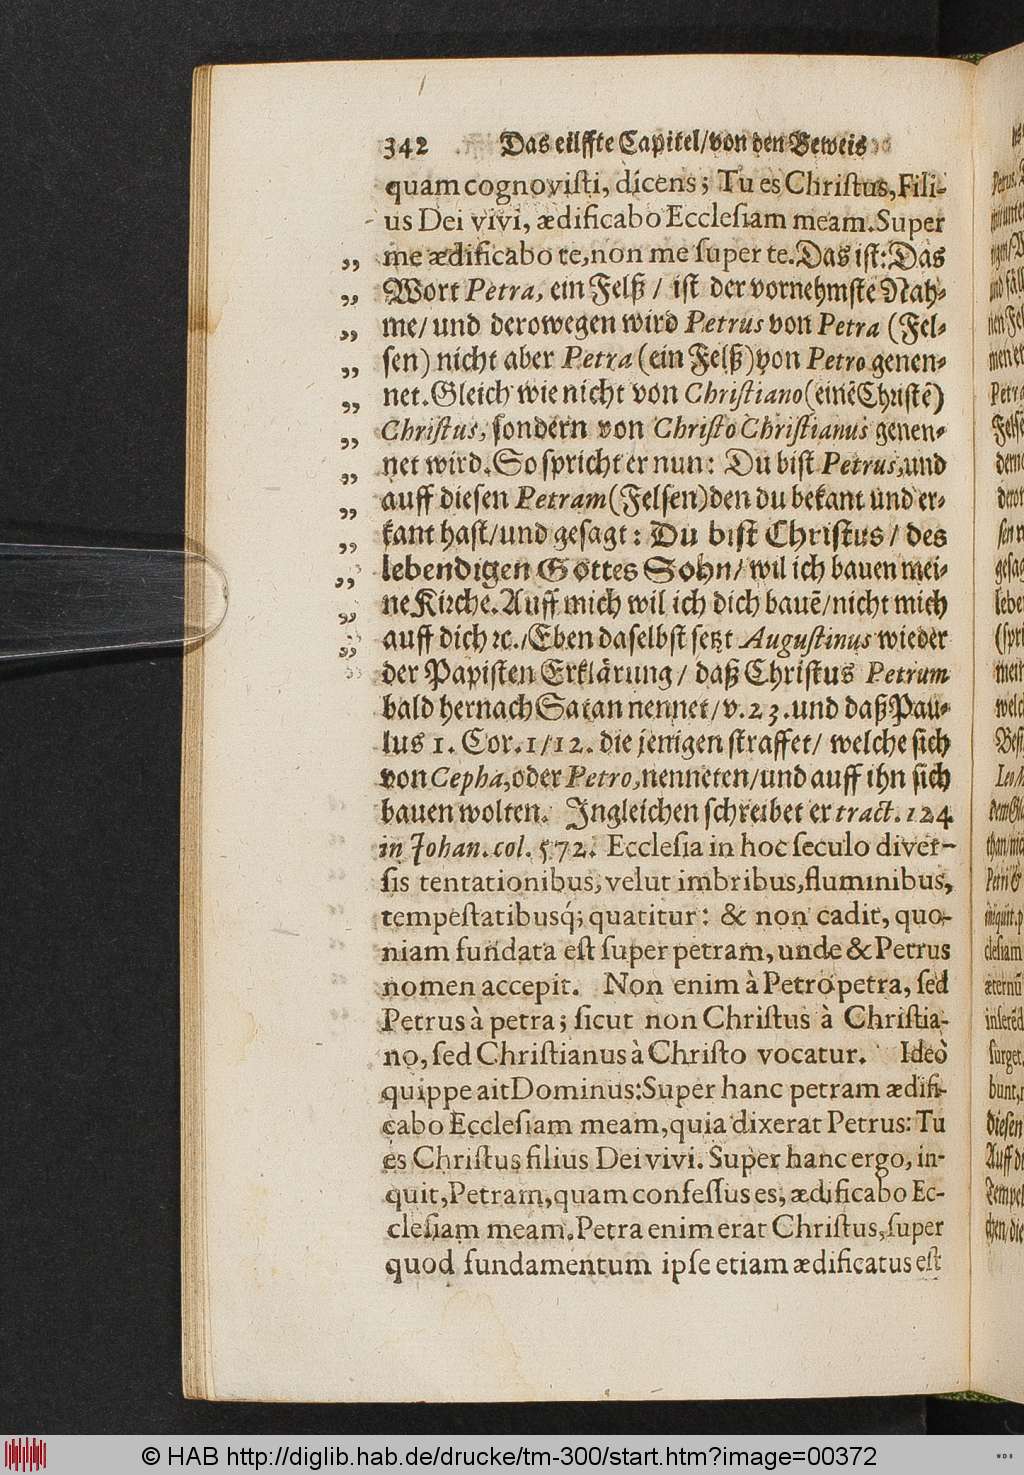 342 Das eilffte Capitel/von den Beweis
quam cognovisti, dicens; Tu es Christus, Fili-
us Dei vivi, ædificabo Ecclesiam meam. Super
„ me ædificabo te, non me super te. Das ist: Das
„ Wort Petra, ein Felß / ist der vornehmste Nah-
„ me/ und derowegen wird Petrus von Petra (Fel-
„ sen) nicht aber Petra (ein Felß) von Petro genen-
„ net. Gleich wie nicht von Christiano (einē Christē)
„ Christus, sondern von Christo Christianus genen-
„ net wird. So spricht er nun: Du bist Petrus, und
„ auff diesen Petram (Felsen) den du bekant und er-
„ kant hast/und gesagt: Du bist Christus / des
„ lebendigen Gottes Sohn/ wil ich bauen mei-
„ ne Kirche. Auff mich wil ich dich bauē/nicht mich
„ auff dich ꝛc./Eben daselbst setzt Augustinus wieder
der Papisten Erklärung / daß Christus Petrum
bald hernach Satan nennet/v. 23. und daß Pau-
lus 1. Cor. 1/12. die jenigen straffet/ welche sich
von Cepha, oder Petro, nenneten/und auff ihn sich
bauen wolten. Ingleichen schreibet er tract. 124.
in Johan. col. 572. Ecclesia in hoc seculo diver-
sis tentationibus, velut imbribus, fluminibus,
tempestatibusq́; quatitur: & non cadit, quo-
niam fundata est super petram, unde & Petrus
nomen accepit. Non enim à Petro petra, sed
Petrus à petra; sicut non Christus à Christia-
no, sed Christianus à Christo vocatur. Ideò
quippe ait Dominus: Super hanc petram ædifi-
cabo Ecclesiam meam, quia dixerat Petrus: Tu
es Christus filius Dei vivi. Super hanc ergo, in-
quit, Petram, quam confessus es, ædificabo Ec-
clesiam meam. Petra enim erat Christus, super
quod fundamentum ipse etiam ædificatus est
© HAB http://diglib.hab.de/drucke/tm-300/start.htm?image=00372